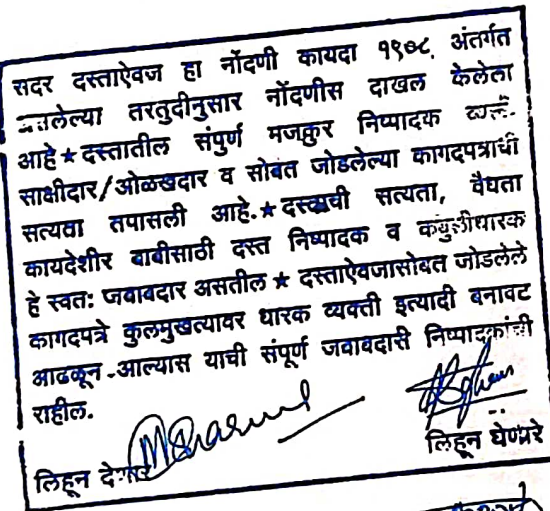 सदर दस्ताऐवज हा नोंदणी कायदा १९०८ अंतर्गत
तरतुदीनुसार नोंदणीस दाखल केलेला
आहे ★ दस्तातील संपुर्ण मजकुर निष्पादक
साक्षीदार/ओळखदार व सोबत जोडलेल्या कागदपत्रांची
सत्यता तपासली आहे. ★ दस्ताची सत्यता, वैधता
कायदेशीर बाबीसाठी दस्त निष्पादक व कबुलीधारक
हे स्वत: जवाबदार असतील ★ दस्ताऐवजासोबत जोडलेले
कागदपत्रे कुलमुखत्यावर धारक व्यक्ती इत्यादी बनावट
आढळून -आल्यास याची संपूर्ण जवाबदारी निष्पादकांची
राहील.
लिहून देणारे
लिहून घेणारे